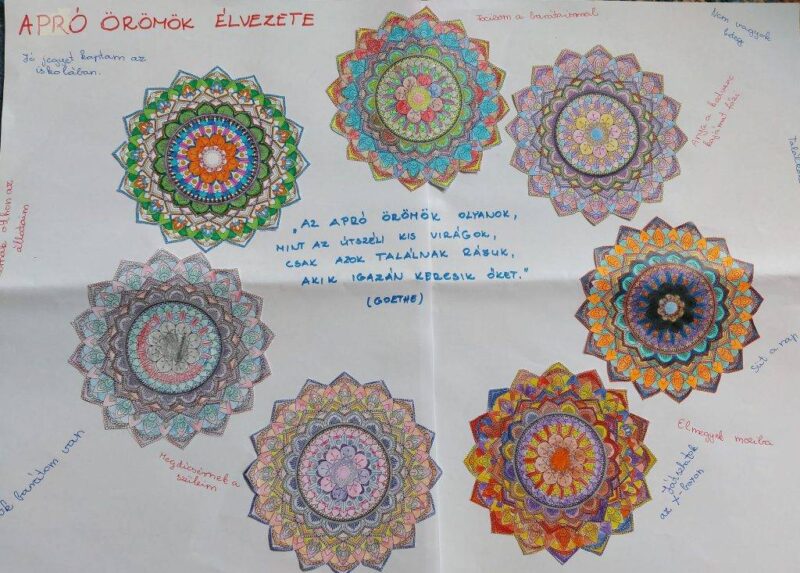 APRÓ ÖRÖMÖK ÉLVEZETE
Jó jegyet kaptam az
iskolában.
Focizom a barátaimmal
Nem vagyok
beteg
Anya a kedvenc
kajámat főzi
otthon az
állataim
„AZ APRÓ ÖRÖMÖK OLYANOK,
MINT AZ ÚTSZÉLI KIS VIRÁGOK,
CSAK AZOK TALÁLNAK RÁJUK,
AKIK IGAZÁN KERESIK ŐKET."
(GOETHE)
Süt a nap
Elmegyek moziba
Játszhatok
az X-boxon
Megdicsérnek a
szüleim
barátom van